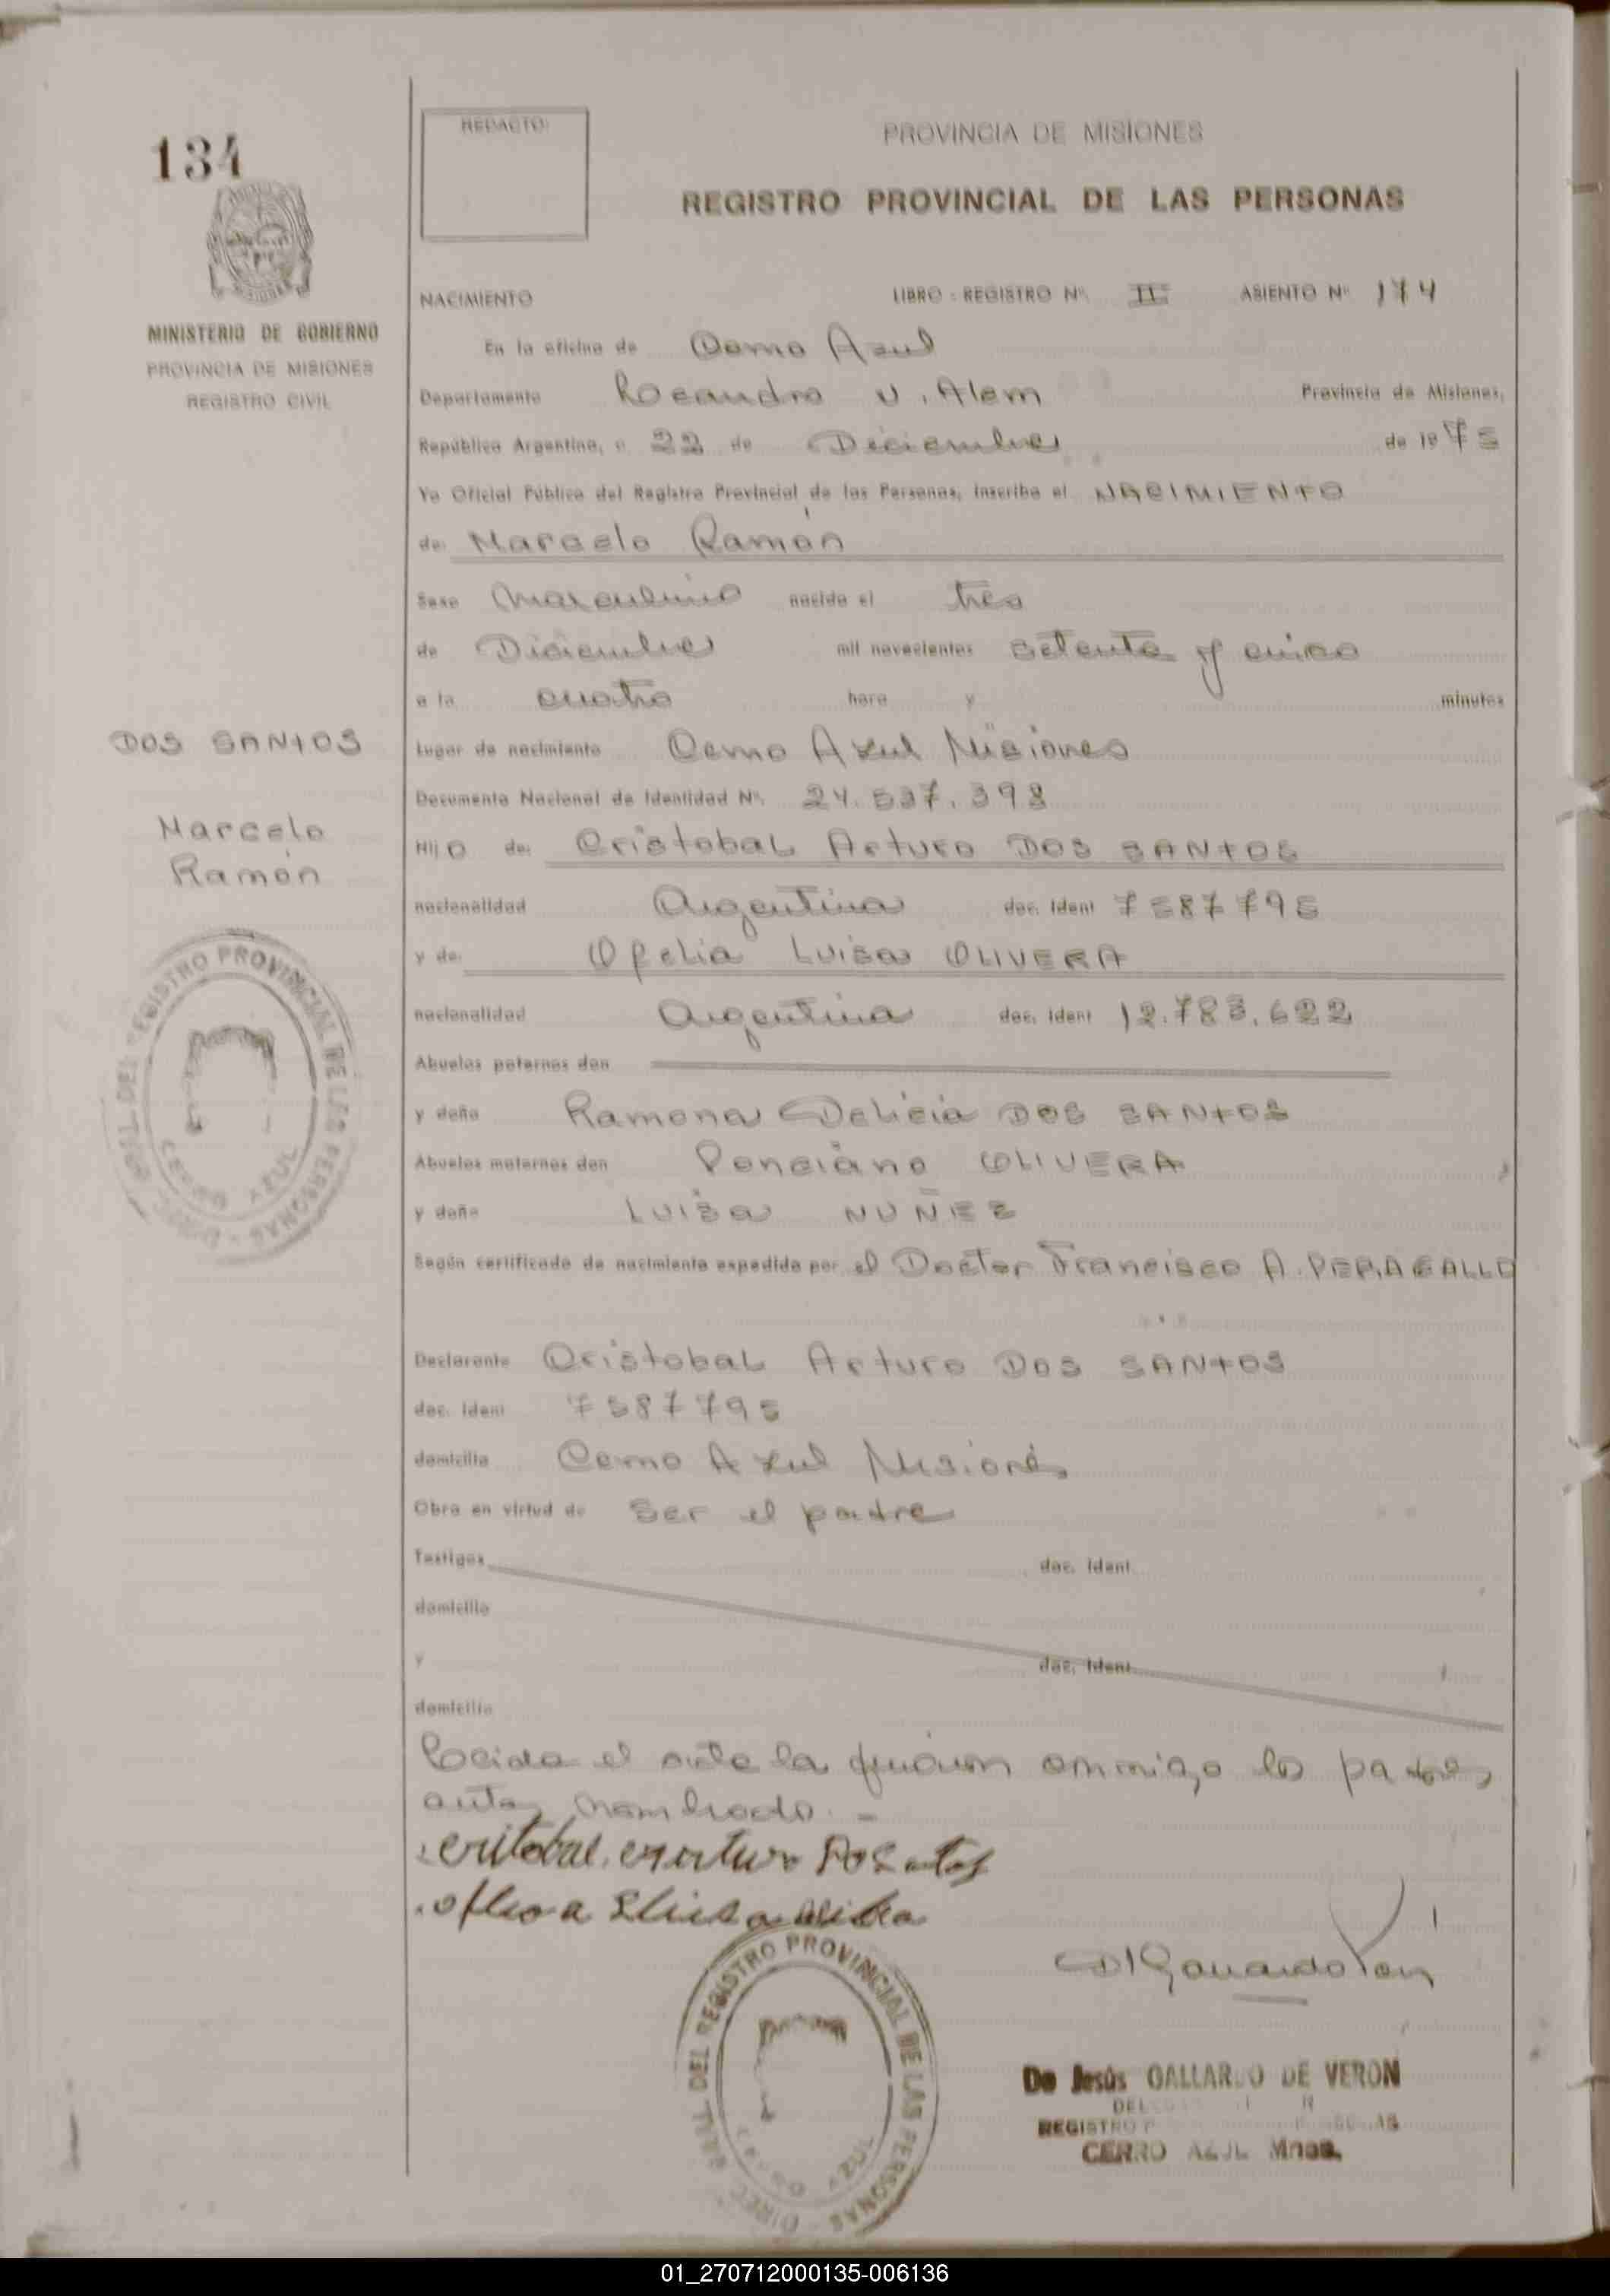 134
REDACTO:
PROVINCIA DE MISIONES
REGISTRO PROVINCIAL DE LAS PERSONAS
MINISTERIO DE GOBIERNO
PROVINCIA DE MISIONES
REGISTRO CIVIL
NACIMIENTO LIBRO - REGISTRO Nº. II ASIENTO Nº 174
En la oficina de Cerro Azul
Departamento Leandro N. Alem Provincia de Misiones,
República Argentina, a 22 de Diciembre de 1975
Yo Oficial Público del Registro Provincial de las Personas, inscribo el NACIMIENTO
de: Marcelo Ramón
Sexo Masculino nacido el tres
de Diciembre mil novecientos setenta y cinco
a la cuatro hora y minutos
Lugar de nacimiento Cerro Azul Misiones
Documento Nacional de Identidad Nº. 24.537.398
Hijo de: Cristobal Arturo DOS SANTOS
nacionalidad Argentina doc. Ident 7587795
y de: Ofelia Luisa OLIVERA
nacionalidad Argentina doc. Ident 12.783.622
Abuelos paternos don
y doña Ramona Delicia DOS SANTOS
Abuelos maternos don Ponciano OLIVERA
y doña Luisa NUÑEZ
Según certificado de nacimiento expedido por el Doctor Francisco A. PERAGALLO
Declarante Cristobal Arturo DOS SANTOS
doc. Ident 7587795
domicilio Cerro Azul Misiones
Obra en virtud de Ser el padre
Testigos doc. Ident.
domicilio
y doc. Ident.
domicilio
DOS SANTOS
Marcelo
Ramón
DIREC. GRAL. DEL REGISTRO PROVINCIAL DE LAS PERSONAS
CERRO AZUL
Leida el acta la firman conmigo los padres
antes nombrado. -
DIREC. GRAL. DEL REGISTRO PROVINCIAL DE LAS PERSONAS
CERRO AZUL
De Jesús GALLARDO DE VERON
REGISTRO
CERRO AZUL Mnes.
01_270712000135-006136